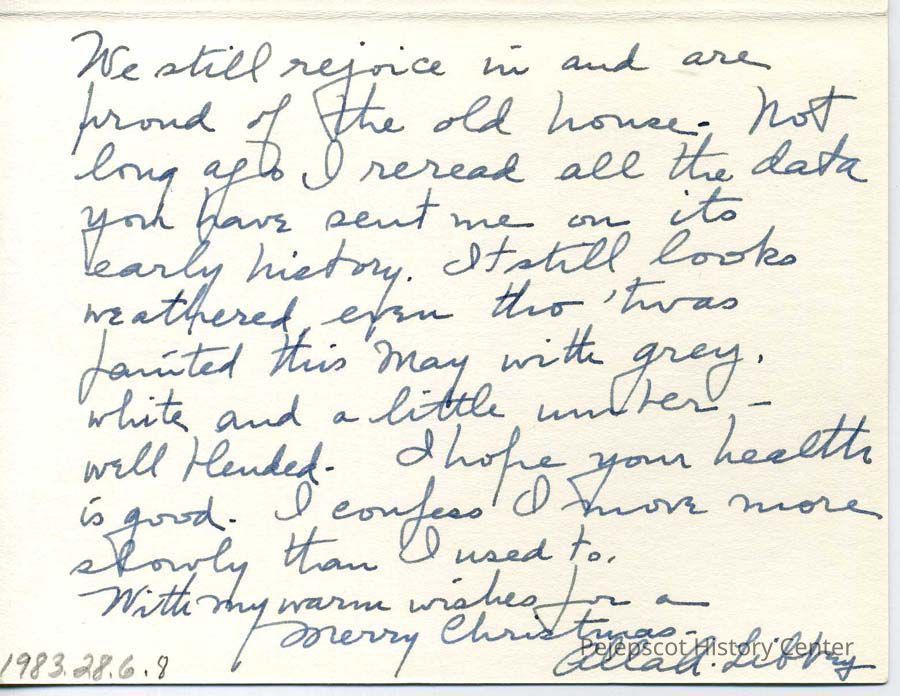 We still rejoice in and are
proud of the old house. Not
long ago I reread all the data
you have sent me on its
early history. It still looks
weathered, even tho 'twas
painted this May with grey,
white and a little umber –
well blended. I hope your health
is good. I confess I move more
slowly than I used to.
With my warm wishes for a
Merry Christmas.
Pejepscot History Center
Libby
1983.28.6.8